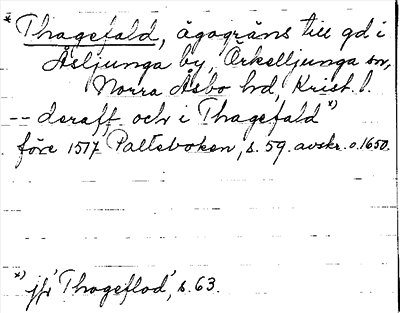 * Thagefald, ägogräns till gd i
Åsljunga by, Örkelljunga sn,
Norra Åsbo hd, Krist. l.
-- deraff och i Thagefald *)
före 1517 Palteboken, s. 59. avskr. o. 1650.
*) jfr 'Thogeflod', s. 63.